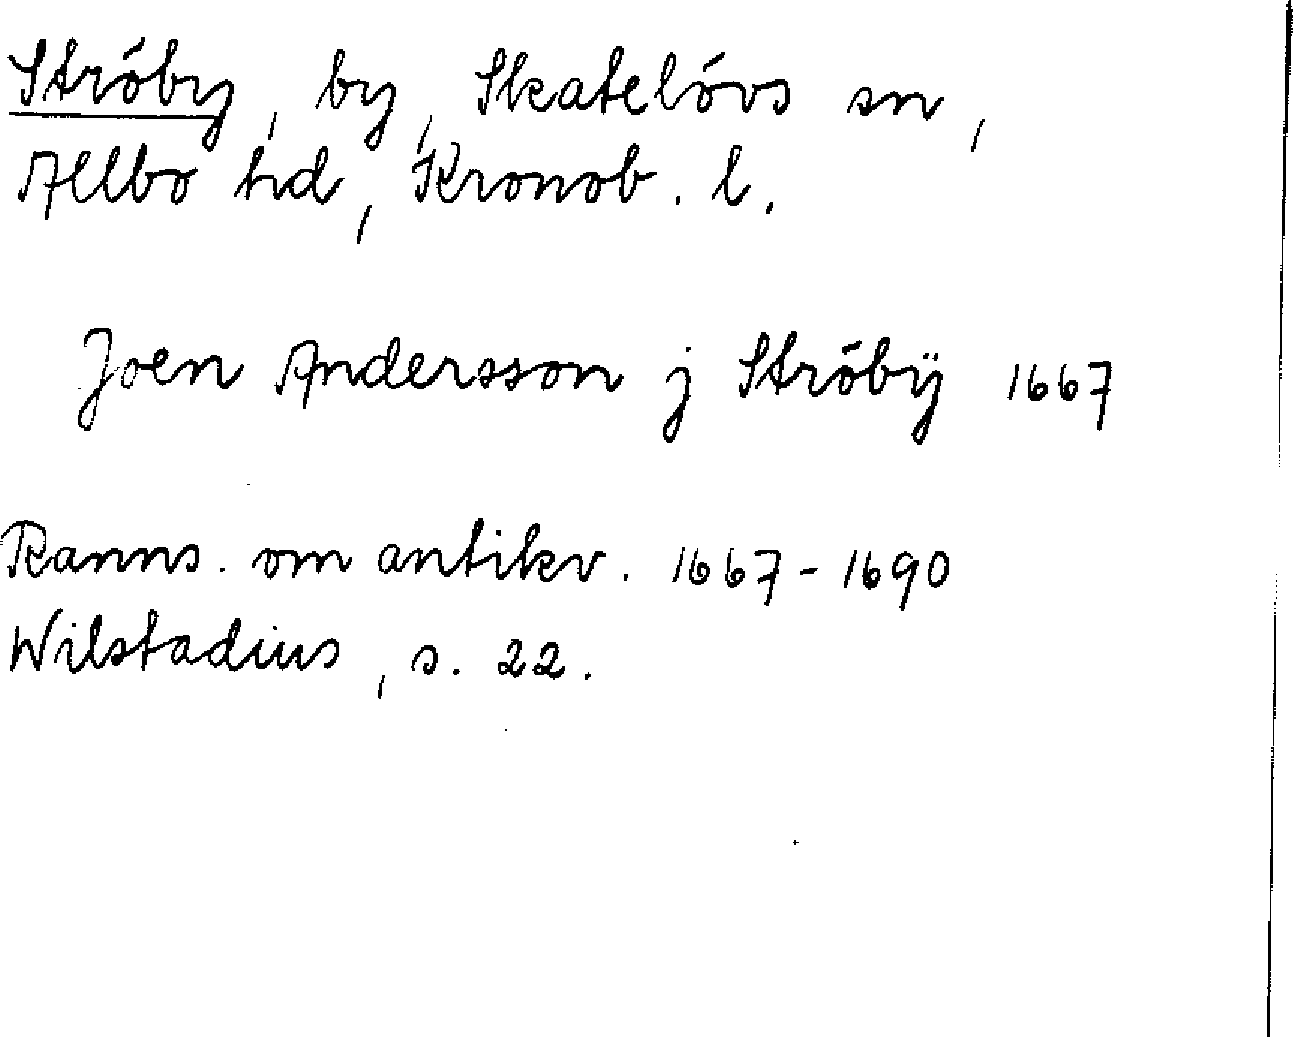 Ströby, by, Skatelövs sn,
Allbo hd, Kronob. l.
Joen Andersson j Ströbÿ 1667
Ranns. om antikv. 1667-1690
Wilstadius, s. 22.